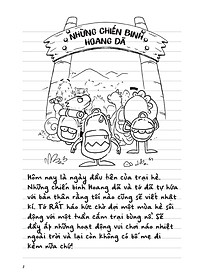 NHỮNG CHIẾN BINH
HOANG DÃ
Hôm nay là ngày đầu tiên của trại hè.
Những chiến binh Hoang dã và tớ đã tự hứa
với bản thân rằng tối nào cũng sẽ viết nhật
kí. Tớ RẤT háo hức chờ đợi một mùa hè sôi
động với một tuần cắm trại bùng nổ. Sẽ
đầy ắp những hoạt động vui chơi náo nhiệt
ngoài trời và lại còn không có bố mẹ đi
kèm nữa chứ!